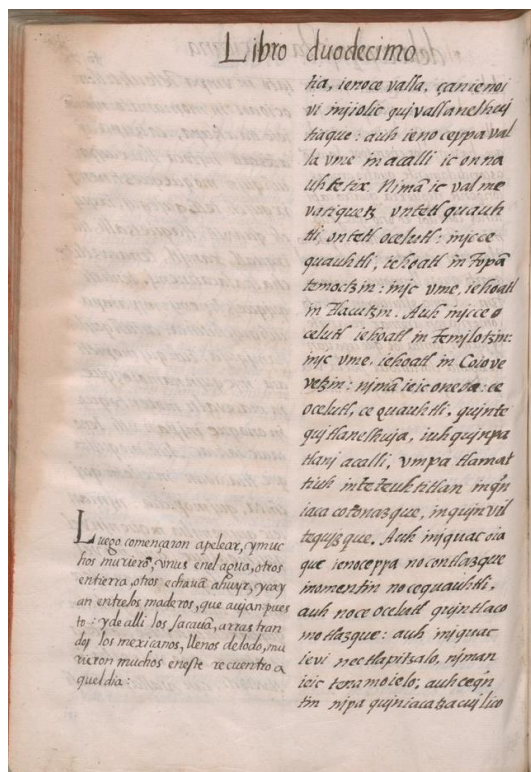 Libro duodecimo
Luego començaron apelear, y muc
hos muriero͂, vnus enel agua, otros
en tierra, otros echauã ahuyr, ycay
an entre los maderos, que auian pues
to: y de alli los sacauã, arrastran
dos los mexicanos, llenos de lodo, mu
rieron muchos en este recuentro a
quel dia:
tia, ienoce valla, çan ie noi
vi in jiolic qujvallanelhuj
tiaque: auh ie no ceppa val
la vme in acalli ic onna
uhtetix. Nimã ic valme
vatiquetz vntetl quauh
tli, ontetl ocelutl: injc ce
quauhtli, iehoatl in topã
temoctzin: injc vme, iehoatl
in Tlacutzin. Auh injc ce o
celutl iehoatl in temilotzin:
injc vme, iehoatl in Coiove
vetzin: njmã ie ic oneoa: ce
ocelutl, ce quauhtli, quinte
qujtlanelhuja, iuhqujnpa
tlanj acalli, vmpa tlamat
tiuh in teteuhtitlan in q̃n
iacacotonazque, in quin vil
tequjzque. Auh in jquac oia
que ie no ceppa no contlazque
in omentin no ce quauhtli,
auh no ce ocelutl quintlaco
motlazque: auh in jquac
ievi netlapitzalo, njman
ie ic tenamoielo; auh cequ
tin nipa qujniacatzacujlico